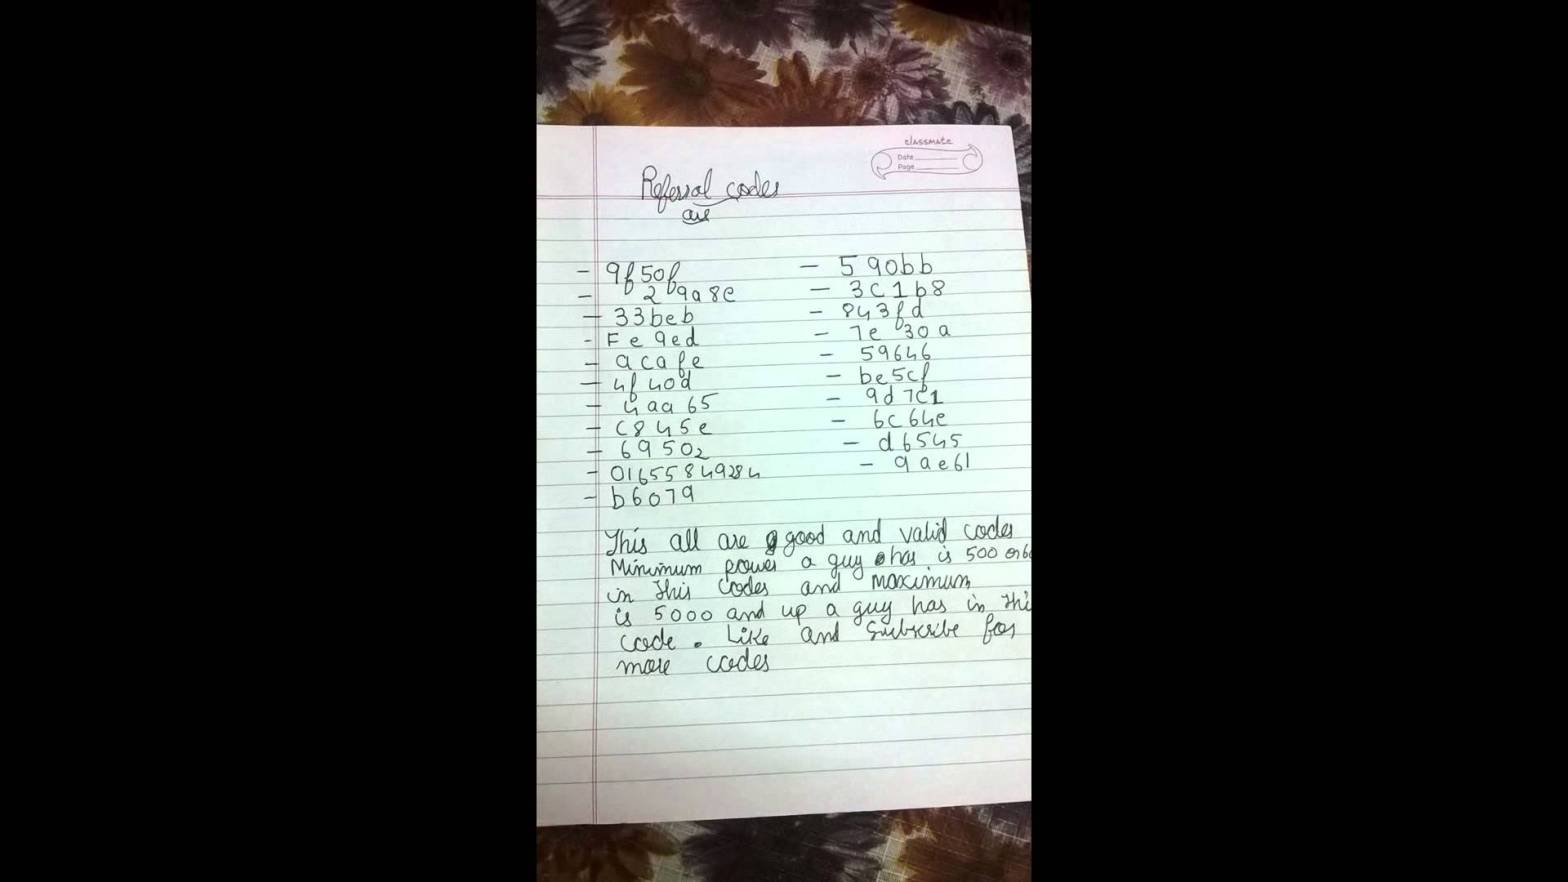 classmate
Date
Page
Referral codes
are
- 9f50f
- 29a8e
- 33beb
- Fe9ed
- acafe
- 4f40d
- 4aa65
- C845e
- 69502
- 01655849284
- b6079
- 590bb
- 3C1b8
- 843fd
- 7e30a
- 59646
- be5cf
- 9d7e1
- 6c64e
- d6545
- 9ae61
This all are good and valid codes
Minimum power a guy has is 500
in this codes and maximum
is 5000 and up a guy has in thi
code. Like and Subscribe for
more codes